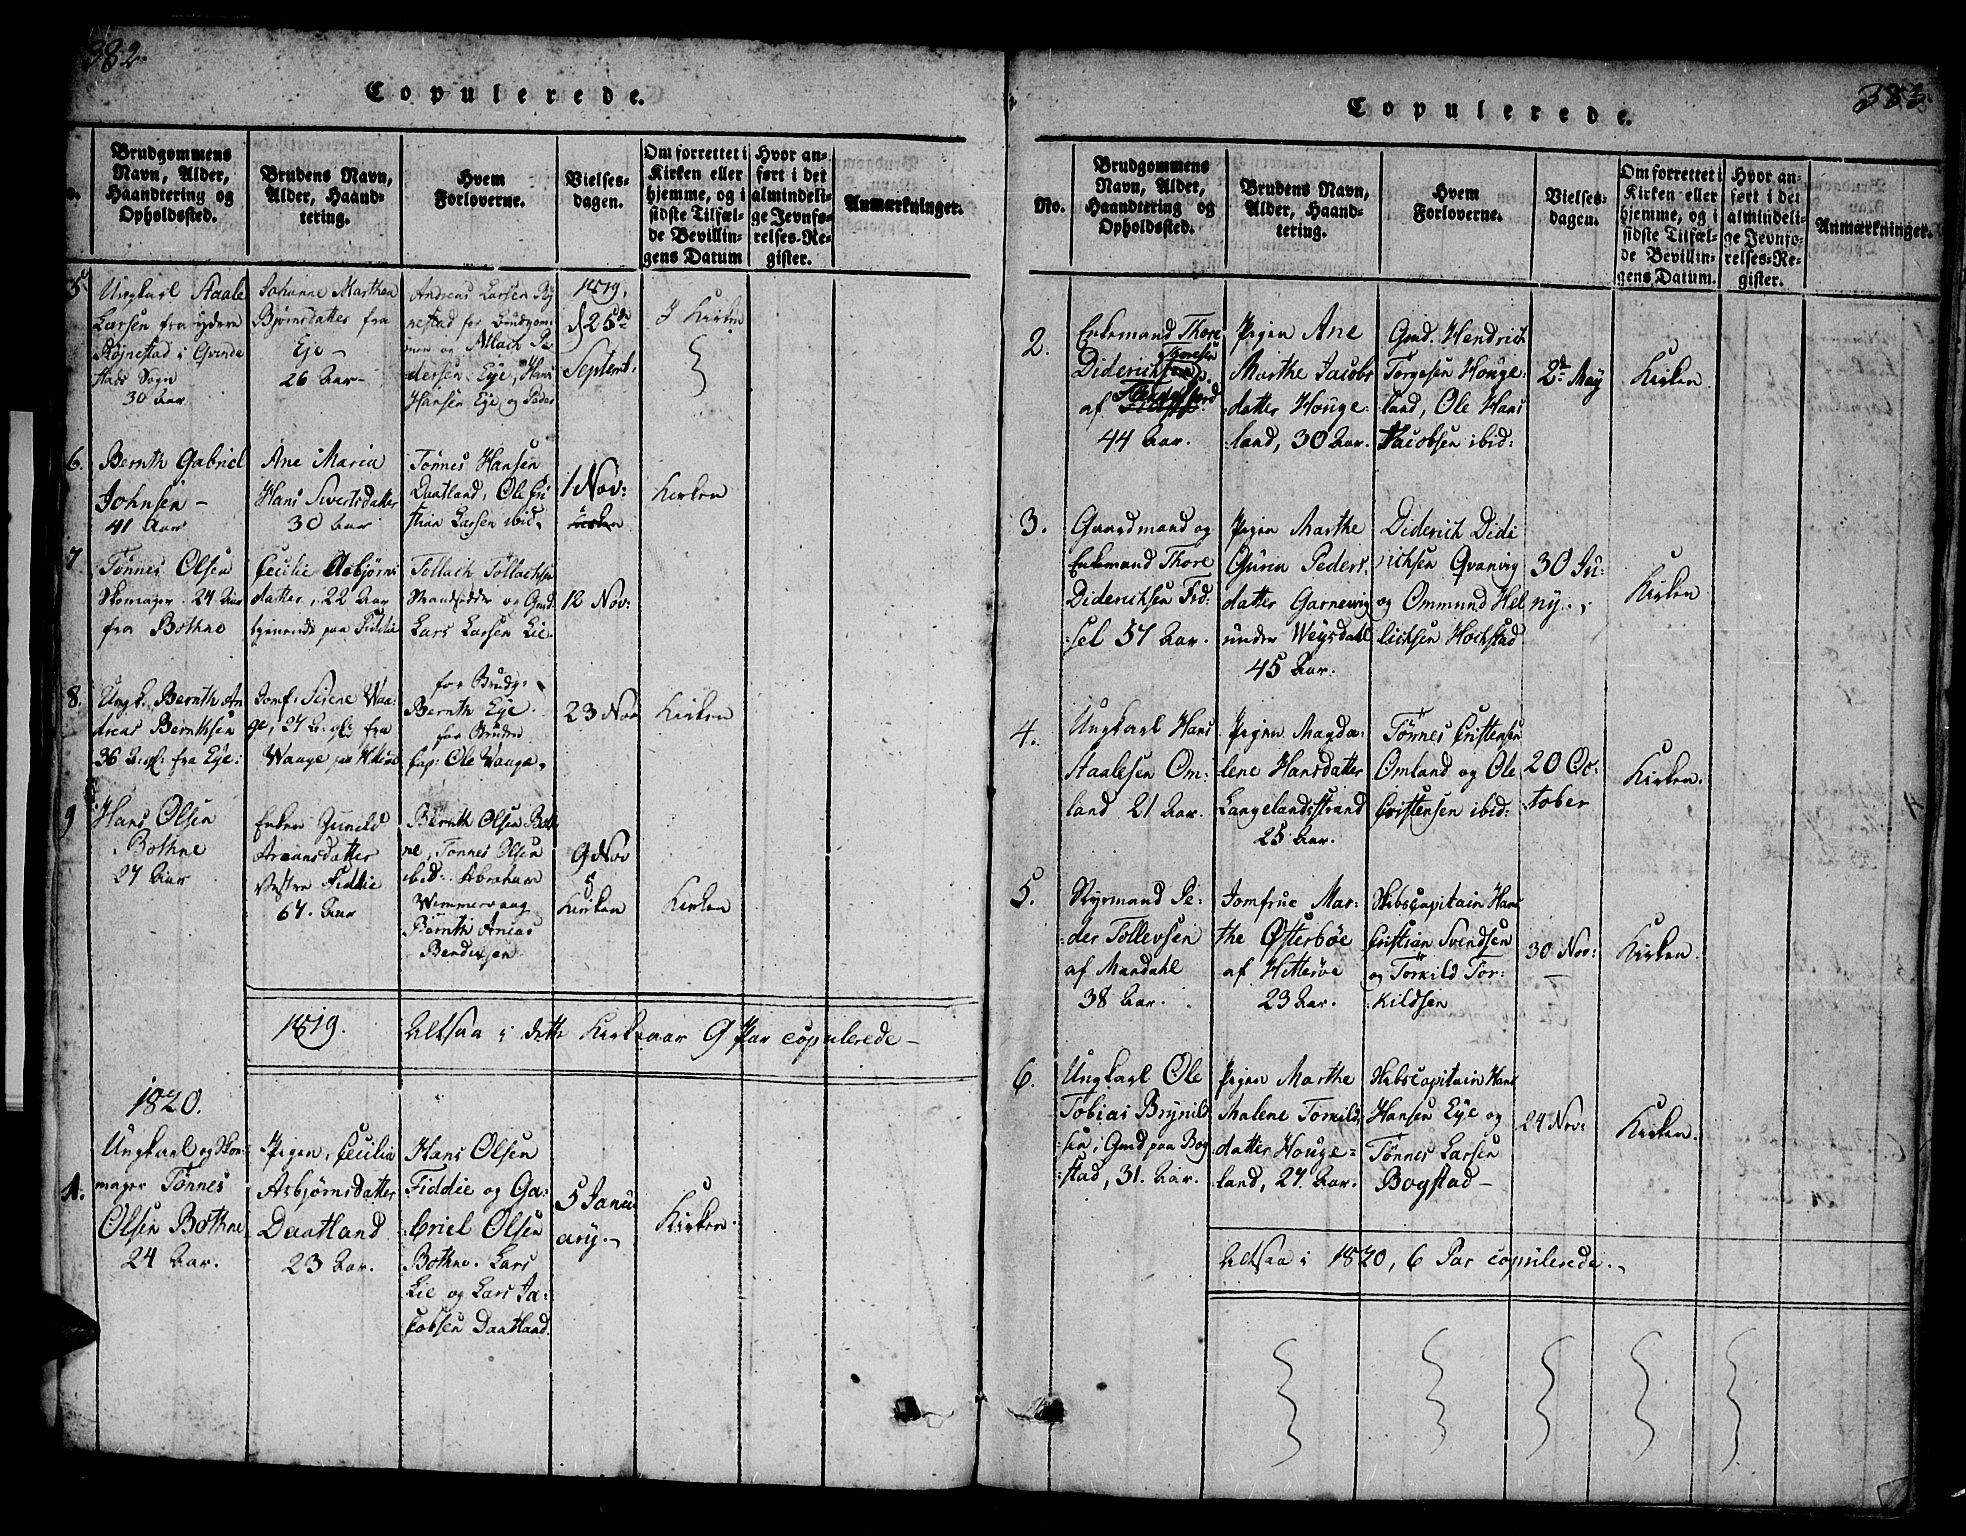 382.
Copulerede.
Brudgommens Navn, Alder, Haandtering og Opholdssted.
Brudens Navn, Alder, Haandtering.
Hvem Forloverne.
Vielsesdagen.
Om forrettet i Kirken eller hjemme, og i sidste Tilfælde Bevillingens Datum
Hvor anført i det almindelige Jevnførelses-Register.
Anmærkninger.
5
Ungkarl Staale
Larsen fra ydere
i Qvinde
stads Sogn
30 Aar
Johanne Marthea
Bjørnsdatter fra
Eje -
26 Aar -
Andreas Larsen
for Brudgom
men og Pe
dersen Eye, Hans
Hansen Eje og Peder
1819,
d 25de
Septembr.
I Kirken
6.
Bernth Gabriel
Johnsen -
41 Aar
Ane Maria
Hans Sivertsdatter
30 Aar
Tønnes Hansen
Daatland, Ole Cri
stian Larsen ibid.
1 Nov:
Kirken
7
Tønnes Olsen
Skomager 24 Aar
fra Bothne
Cecilie Asbjørns
datter, 22 Aar
tjenende paa Fiddie
Tollach Tollachsen
Strandsidder og Gmd
Lars Larsen Lie
12 Nov:
8.
Ungk. Bernth An
dreas Bernthsen
36 A: gl: fra Eje:
Jomf: Serene Waa
ge, 27 A: gl: fra
Waage paa Hitterø
for Brudg:
Bernth Eje.
for Bruden
Cap: Ole Waage.
23 Nov
Kirken
9
Hans Olsen
Bothne
27 Aar
Enken Gunild
Areansdatter
Vestre Fiddie
67. Aar
Bernth Olsen Both
ne, Tønnes Olsen
ibid. Abraham
Wimmervaag
Bernth Anias
Berdinsen
9 Nov
Kirken
Kirken
1819. Altsaa i dette Kirkeaar 9 Par copulerede -
1820.
1.
Ungkarl og Skoe-
mager Tønnes
Olsen Bothne
24 Aar.
Pigen, Cecilia
Asbjørnsdatter
Daatland
23 Aar.
Hans Olsen
Fiddie og Ga:
briel Olsen
Bothne. Lars
Lie og Lars Ja:
cobsen Daatland.
5 Janu
ary.
Kirken.
383.
Copulerede.
No.
Brudgommens Navn, Alder, Haandtering og Opholdssted.
Brudens Navn, Alder, Haandtering.
Hvem Forloverne.
Vielsesdagen.
Om forrettet i Kirken eller hjemme, og i sidste Tilfælde Bevillingens Datum.
Hvor anført i det almindelige Jevnførelses-Register.
Anmærkninger.
2.
Enkemand Thore
Thoresen
Diderich
af
44 Aar.
Pigen Ane
Marthe Jacobs
datter Houge:
land, 30 Aar.
Gmd. Hendrich
Torgesen Houge:
land, Ole Hans
Jacobsen ibid:
2de May
Kirken.
3.
Gaardmand og
Enkemand Thore
Diderichsen Fed:
:sel 57 Aar.
Pigen Marthe
Guren Peders:
datter Garnevig
under Weysdahl
45 Aar.
Diderich Didi
richsen Qvanvig
og Ommund Hel
lichsen Hochstad
30 Ju:
ny.
Kirken
4.
Ungkarl Hans
Staalesen Om:
land 21 Aar.
Pigen Magda:
lene Hansdatter
Langelandsstrand
25 Aar.
Tønnes Cristensen
Omland og Ole
Cristensen ibid:
20 Oc:
tober
Kirken.
5.
Styrmand Pe:
:der Tollevsen
af Mandahl
38 Aar.
Jomfrue Mar:
the Østerbøe
af Hitterøe
23 Aar.
Skibscapitain Hans
Cristian Svendsen
og Torkild Tor:
:kildsen
30 Nov:
Kirken.
6.
Ungkarl Ole
Tobias Brynild
:sen, Gmd paa Bog
:stad, 31. Aar.
Pigen Marthe
Malene Torkilds
datter Houge=
land, 27. Aar.
Skibscapitain Hans
Hansen Eje og
Tønnes Larsen
Bogstad -
24 Nov:
Kirken.
Altsaa i 1820, 6 Par copulerede.